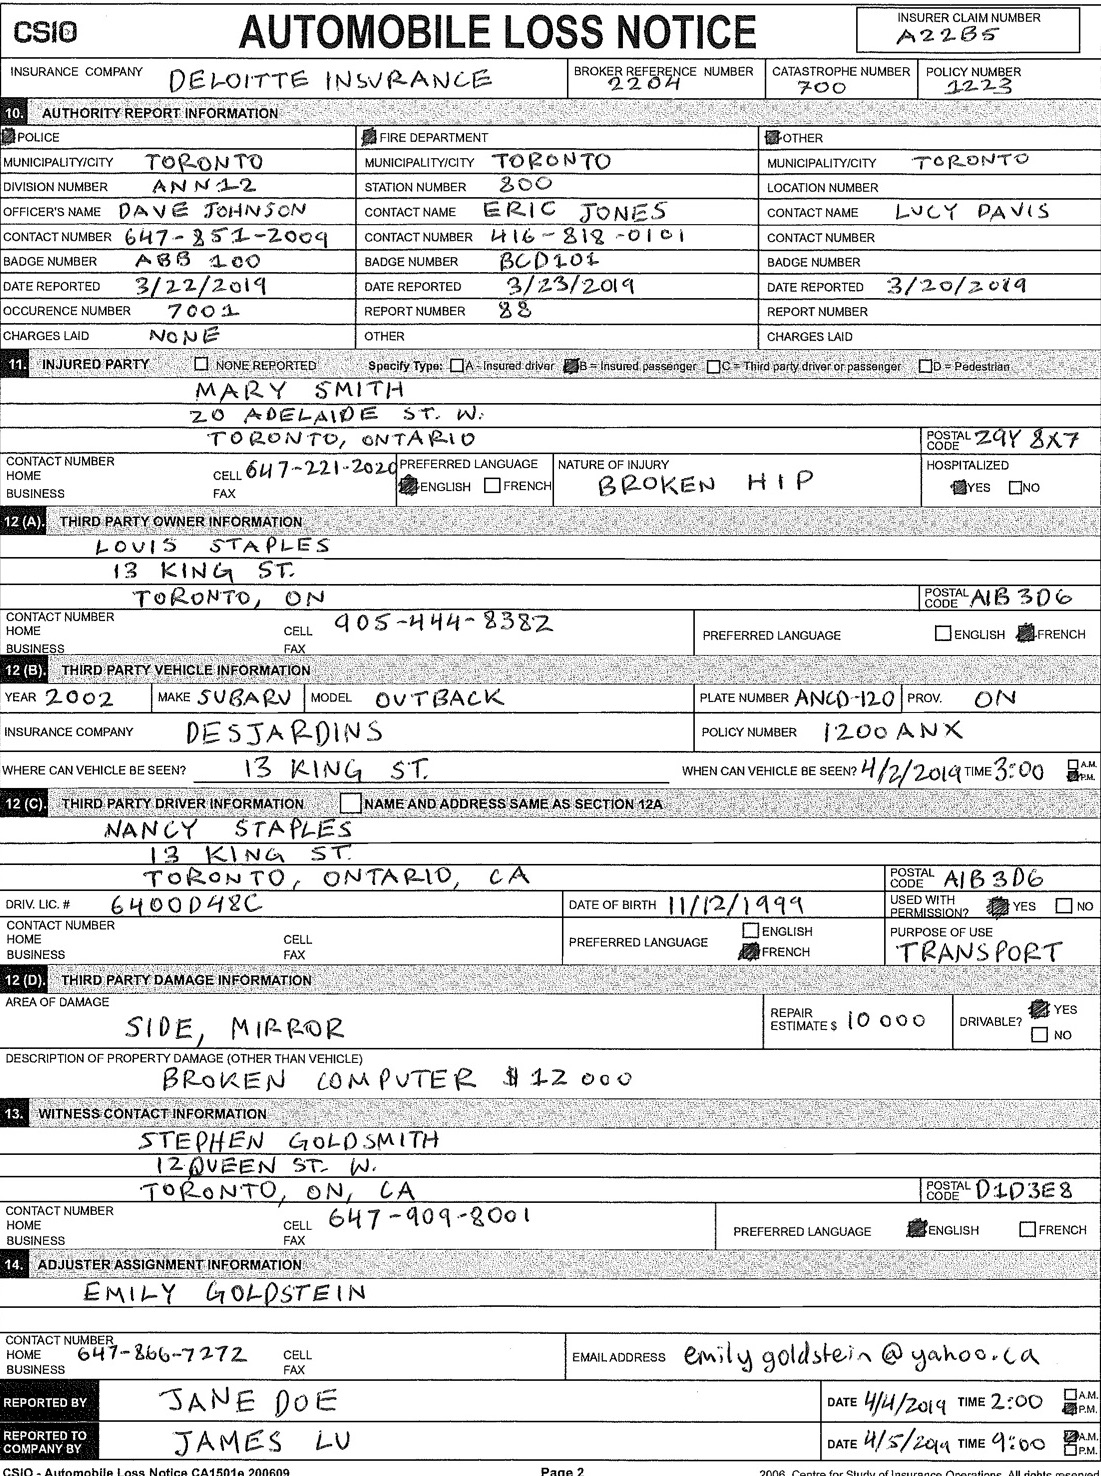 CSIO
AUTOMOBILE LOSS NOTICE
INSURER CLAIM NUMBER
A22B5
INSURANCE COMPANY DELOITTE INSURANCE
BROKER REFERENCE NUMBER 2204
CATASTROPHE NUMBER 700
POLICY NUMBER 1223
10. AUTHORITY REPORT INFORMATION
POLICE FIRE DEPARTMENT OTHER
MUNICIPALITY/CITY TORONTO MUNICIPALITY/CITY TORONTO MUNICIPALITY/CITY TORONTO
DIVISION NUMBER ANN12 STATION NUMBER 800 LOCATION NUMBER
OFFICER'S NAME DAVE JOHNSON CONTACT NAME ERIC JONES CONTACT NAME LUCY DAVIS
CONTACT NUMBER 647-851-2009 CONTACT NUMBER 416-818-0101 CONTACT NUMBER
BADGE NUMBER ABB 100 BADGE NUMBER BCD101 BADGE NUMBER
DATE REPORTED 3/22/2019 DATE REPORTED 3/23/2019 DATE REPORTED 3/20/2019
OCCURENCE NUMBER 7001 REPORT NUMBER 88 REPORT NUMBER
CHARGES LAID NONE OTHER CHARGES LAID
11. INJURED PARTY NONE REPORTED Specify Type: A - Insured driver B = Insured passenger C = Third party driver or passenger D = Pedestrian
MARY SMITH
20 ADELAIDE ST. W.
TORONTO, ONTARIO POSTAL CODE Z9Y 8X7
CONTACT NUMBER
HOME CELL 647-221-2020
BUSINESS FAX
PREFERRED LANGUAGE
ENGLISH FRENCH
NATURE OF INJURY
BROKEN HIP
HOSPITALIZED
YES NO
12 (A). THIRD PARTY OWNER INFORMATION
LOUIS STAPLES
13 KING ST.
TORONTO, ON POSTAL CODE A1B 3D6
CONTACT NUMBER
HOME CELL 905-444-8382
BUSINESS FAX
PREFERRED LANGUAGE ENGLISH FRENCH
12 (B). THIRD PARTY VEHICLE INFORMATION
YEAR 2002 MAKE SUBARU MODEL OUTBACK PLATE NUMBER ANCD-120 PROV. ON
INSURANCE COMPANY DESJARDINS POLICY NUMBER 1200 ANX
WHERE CAN VEHICLE BE SEEN? 13 KING ST. WHEN CAN VEHICLE BE SEEN? 4/2/2019 TIME 3:00 A.M. P.M.
12 (C). THIRD PARTY DRIVER INFORMATION NAME AND ADDRESS SAME AS SECTION 12A
NANCY STAPLES
13 KING ST.
TORONTO, ONTARIO, CA POSTAL CODE A1B 3D6
DRIV. LIC. # 6400D48C DATE OF BIRTH 11/12/1999 USED WITH PERMISSION? YES NO
CONTACT NUMBER
HOME CELL
BUSINESS FAX
PREFERRED LANGUAGE ENGLISH FRENCH
PURPOSE OF USE
TRANSPORT
12 (D). THIRD PARTY DAMAGE INFORMATION
AREA OF DAMAGE
SIDE, MIRROR
REPAIR ESTIMATE $ 10 000
DRIVABLE? YES NO
DESCRIPTION OF PROPERTY DAMAGE (OTHER THAN VEHICLE)
BROKEN COMPUTER $12 000
13. WITNESS CONTACT INFORMATION
STEPHEN GOLDSMITH
12 QUEEN ST. W.
TORONTO, ON, CA POSTAL CODE D1D3E8
CONTACT NUMBER
HOME CELL 647-909-8001
BUSINESS FAX
PREFERRED LANGUAGE ENGLISH FRENCH
14. ADJUSTER ASSIGNMENT INFORMATION
EMILY GOLDSTEIN
CONTACT NUMBER
HOME 647-866-7272 CELL
BUSINESS FAX
EMAIL ADDRESS emily goldstein@yahoo.ca
REPORTED BY JANE DOE DATE 4/4/2019 TIME 2:00 A.M. P.M.
REPORTED TO COMPANY BY JAMES LU DATE 4/5/2019 TIME 9:00 A.M. P.M.
CSIO - Automobile Loss Notice CA1501e 200609 Page 2 2006, Centre for Study of Insurance Operations. All rights reserved